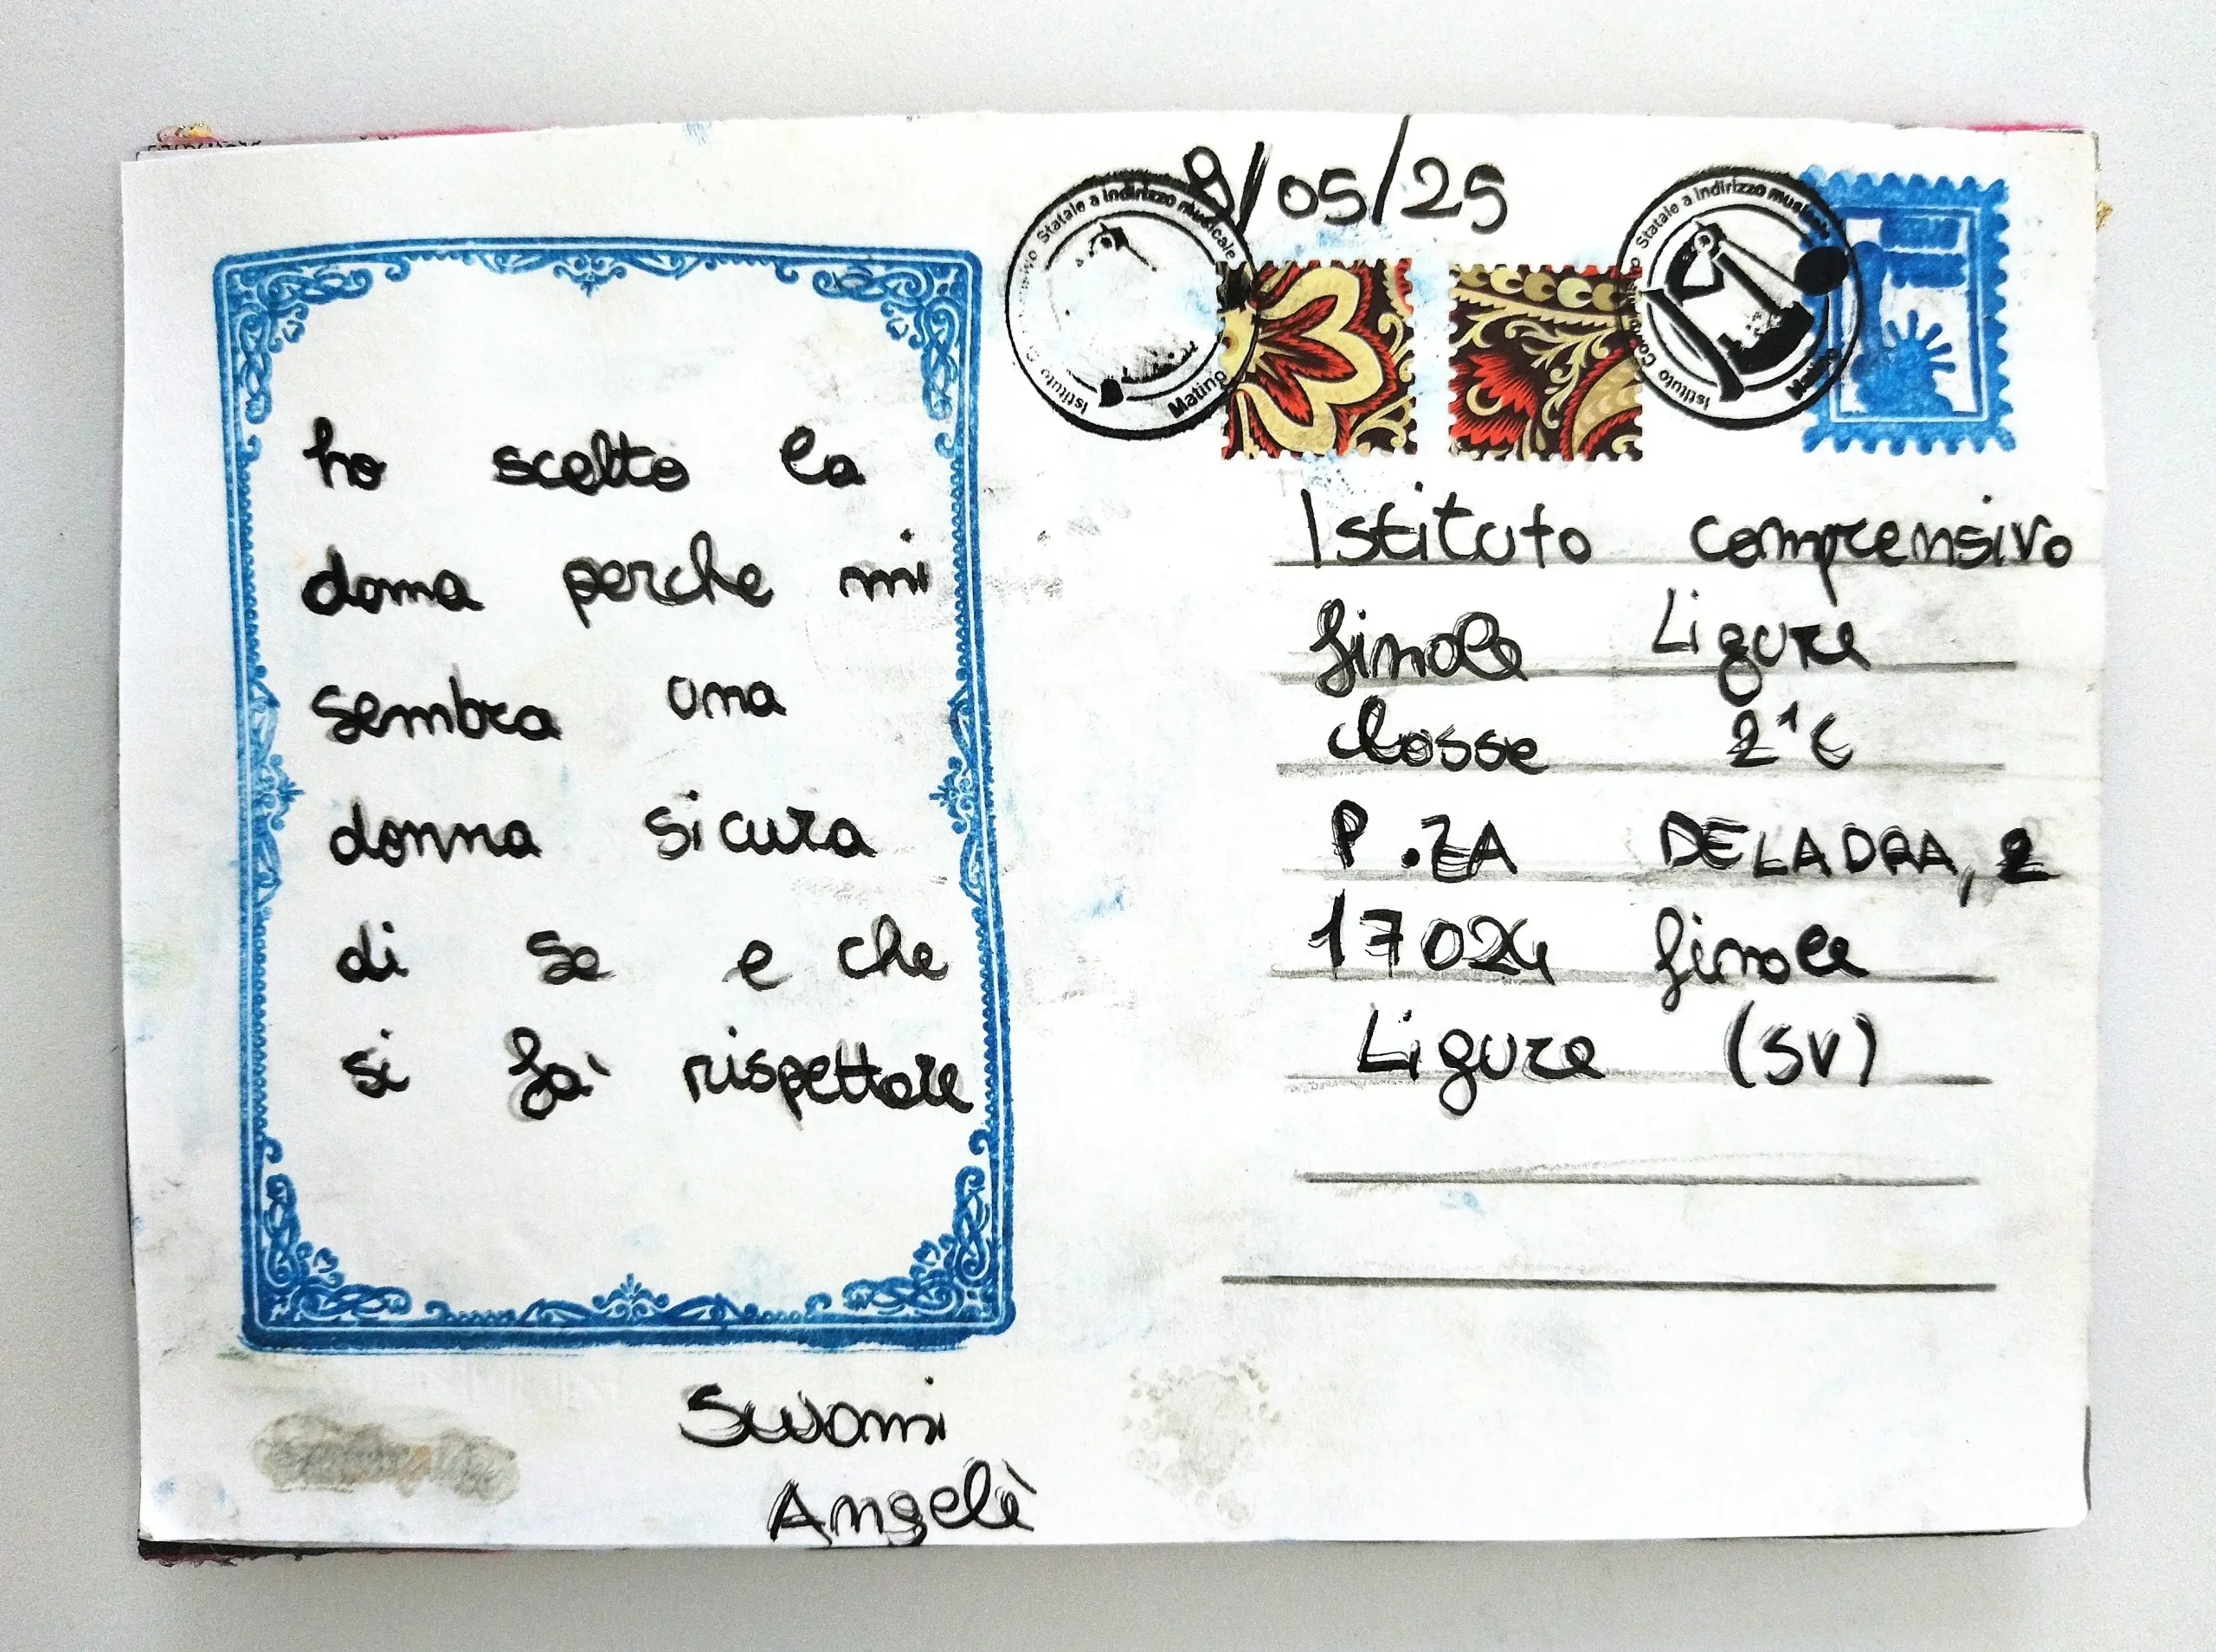 ho scelto la
doma perche mi
sembra una
donna sicura
di se e che
si fa' rispettare
Swami
Angelè
9/05/25
Statale a indirizzo musicale
Matino
Statale a indirizzo
Istituto
Matino
Istituto comprensivo
finale Ligure
classe 2^C
P.ZA DELADRA, 2
17024 finale
Ligure (SV)